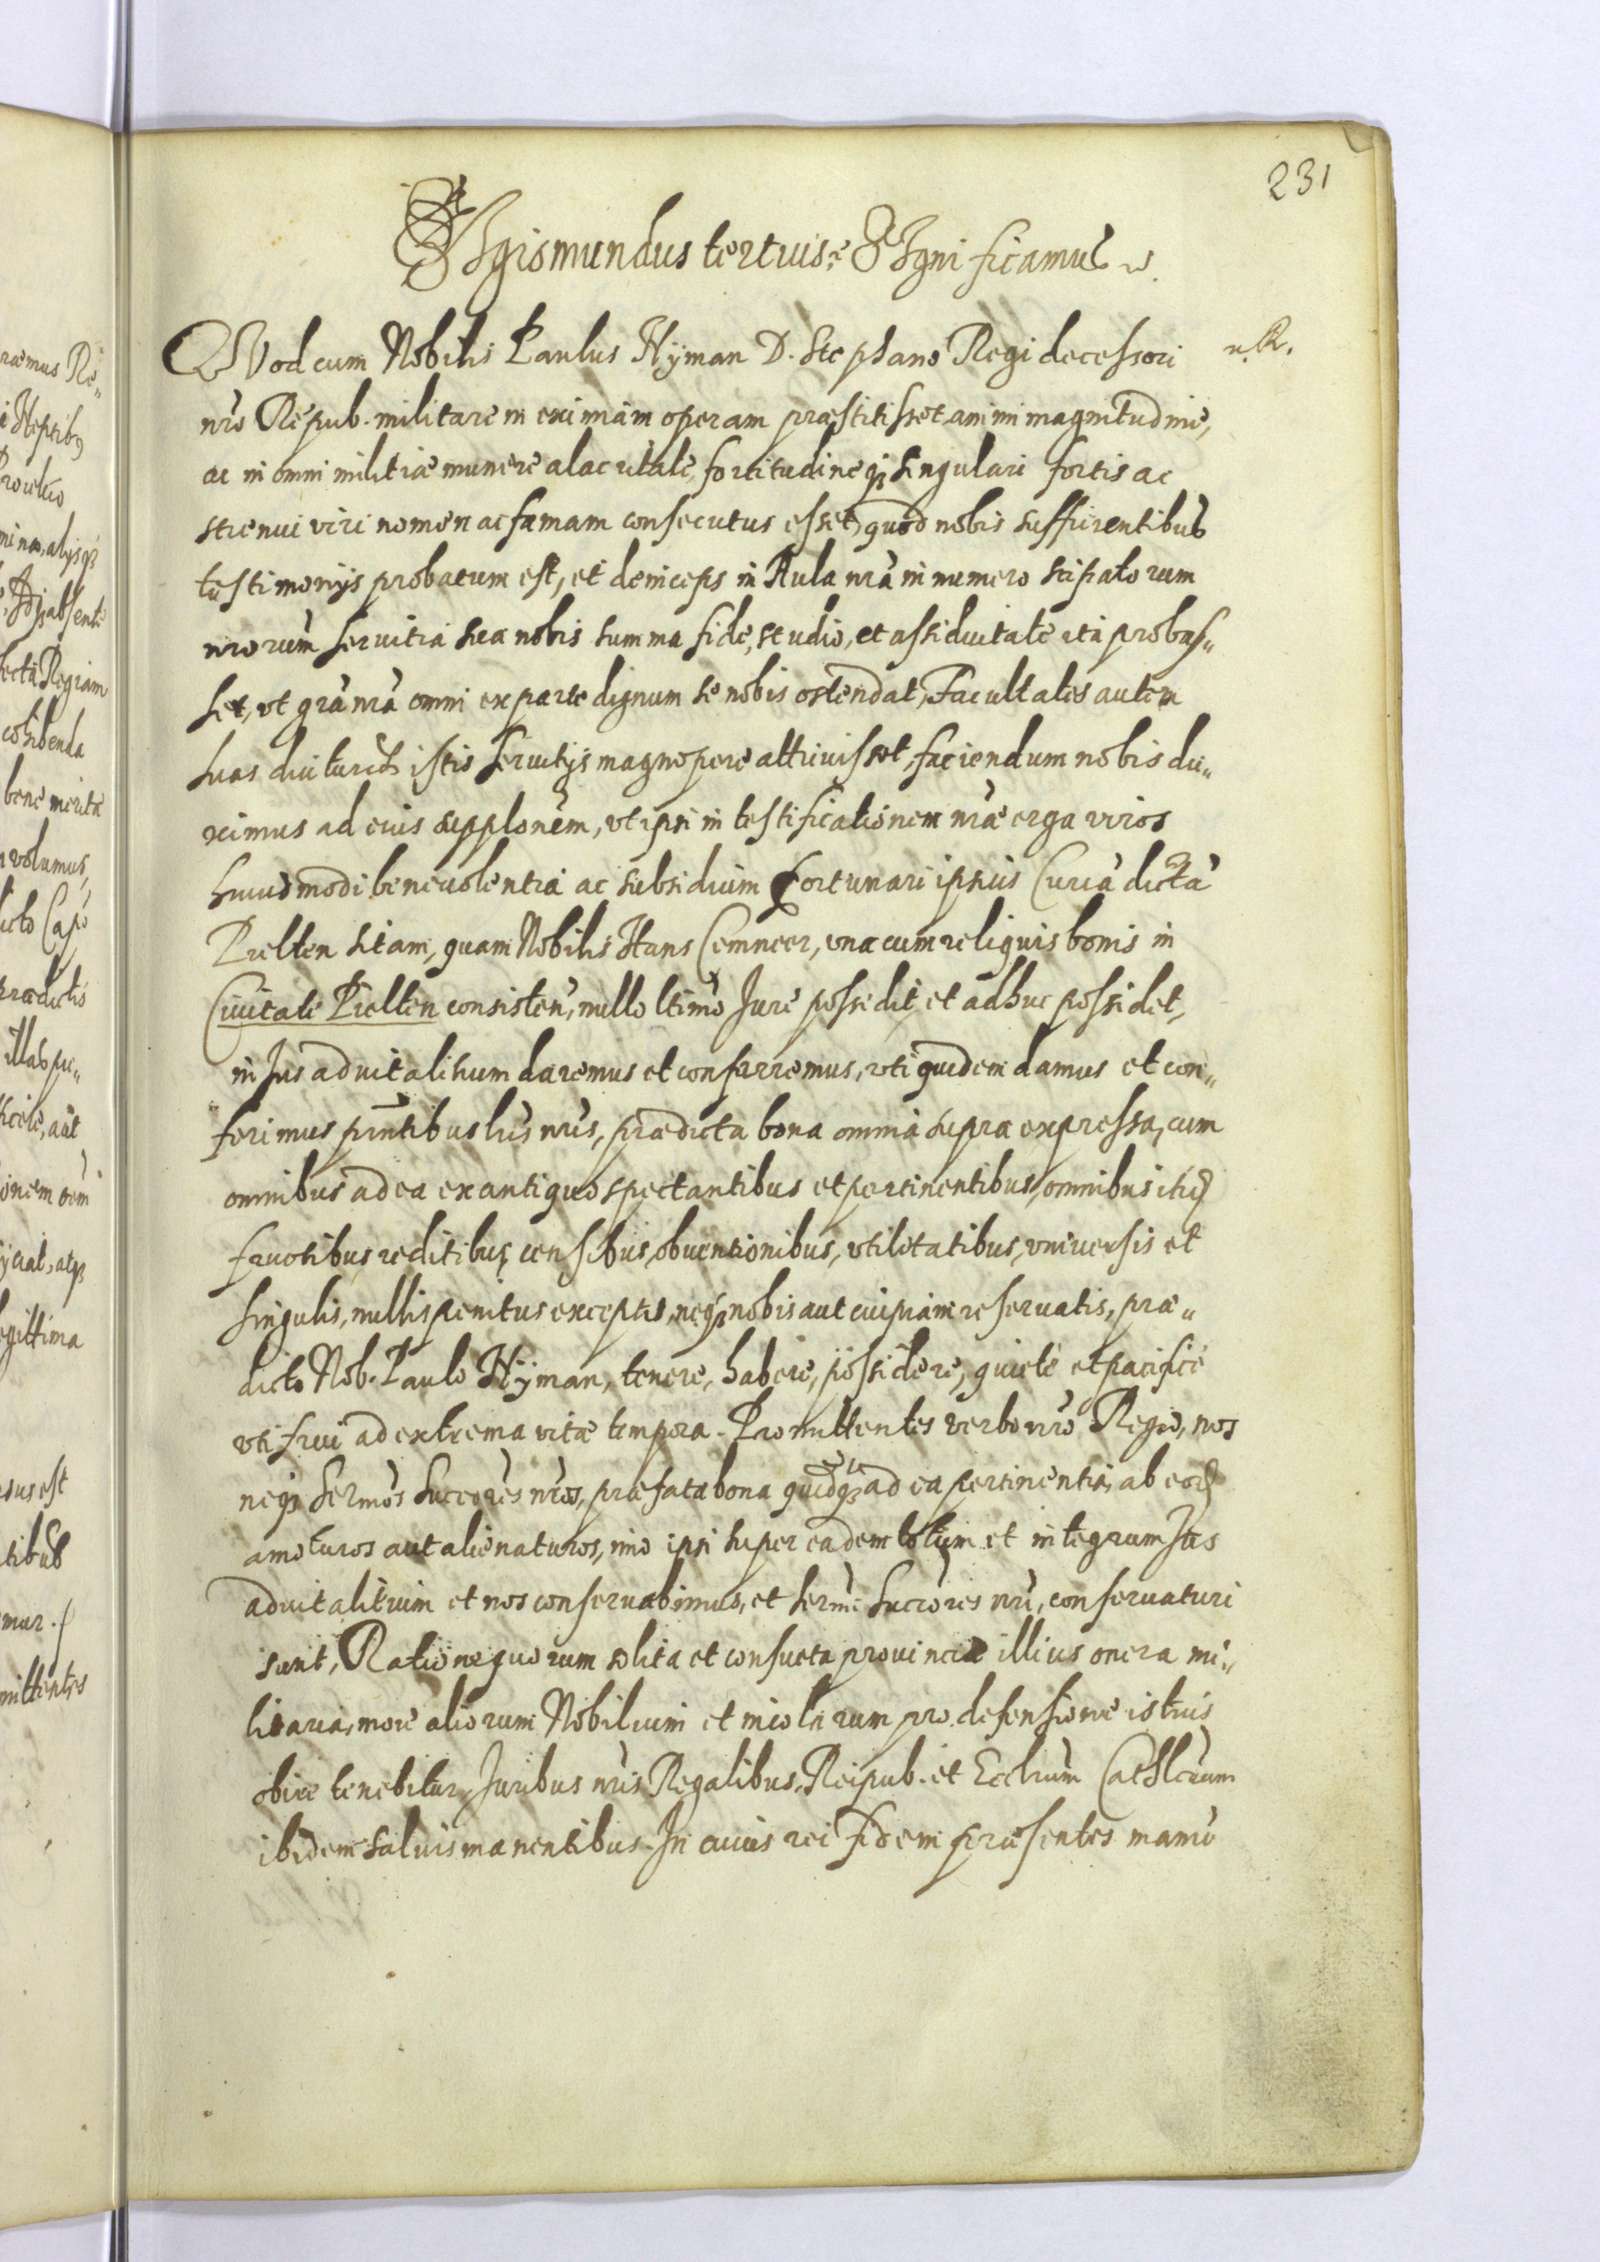 231
Sigismundus tertius etc Significamus etc
Quod cum Nobilis Paulus Hÿman D. Stephano Regi decessori n. R.
nro Reipub. militarem eximiam operam præstitisset, animi magnitudine,
ac in omni militiæ munere alacritate, fortitudineq3 singulari fortis ac
strenui viri nomen ac famam consecutus esset, quod nobis sufficientibus
testimonijs probatum est, et deinceps in Aula nra in numero stipatorum
nrorum seruitia sua nobis summa fide, studio, et assiduitate ita probas„
set, vt gra nra omni ex parte dignum se nobis ostendat, Facultates autem
suas diuturnis istis seruitijs magnopere attriuisset, faciendum nobis du„
ximus ad eius supplonem, vt ipsi in testificationem nræ erga viros
huiusmodi beneuolentiæ ac subsidium fortunarum ipsius Curia dicta
Pielten sitam, quam Nobilis Hans Cemneer, vna cum reliquis bonis in
Ciuitate Pielten consisten, nullo ltimo Jure possedit, et adhuc possidet,
in Jus aduitalitium daremus et conferremus, vti quidem damus et con„
ferimus pntibus lris nris, prædicta bona omnia supra expressa, cum
omnibus ad ea ex antiquo spectantibus et pertinentibus, omnibus itid
fructibus, reditibus, censibus, obuentionibus, vtilitatibus, vniuersis et
singulis, nullis penitus exceptis, neq3 nobis aut cuipiam reseruatis, præ„
dicto Nob. Paulo Hÿman, tenere, habere, possidere, quietè et pacificè
vti frui ad extrema vitæ tempora. Promittentes verbo nro Regio, nos
neq3 Sermos Succores nros, præfata bona quidq3 ad ea pertinentia ab eod
amoturos aut alienaturos, imo ipsi super eadem totum et integrum Jus
aduitalitium et nos conseruabimus, et Sermi Succores nri, conseruaturi
sunt, Ratione quorum solita et consueta prouinciæ illius onera mi„
litaria, more aliorum Nobilium et incolarum pro defensione istius
obire tenebitur, Juribus nris Regalibus, Reipub. et Ecclium Cathlcarum
ibidem saluis manentibus. In cuius rei fidem præsentes manu